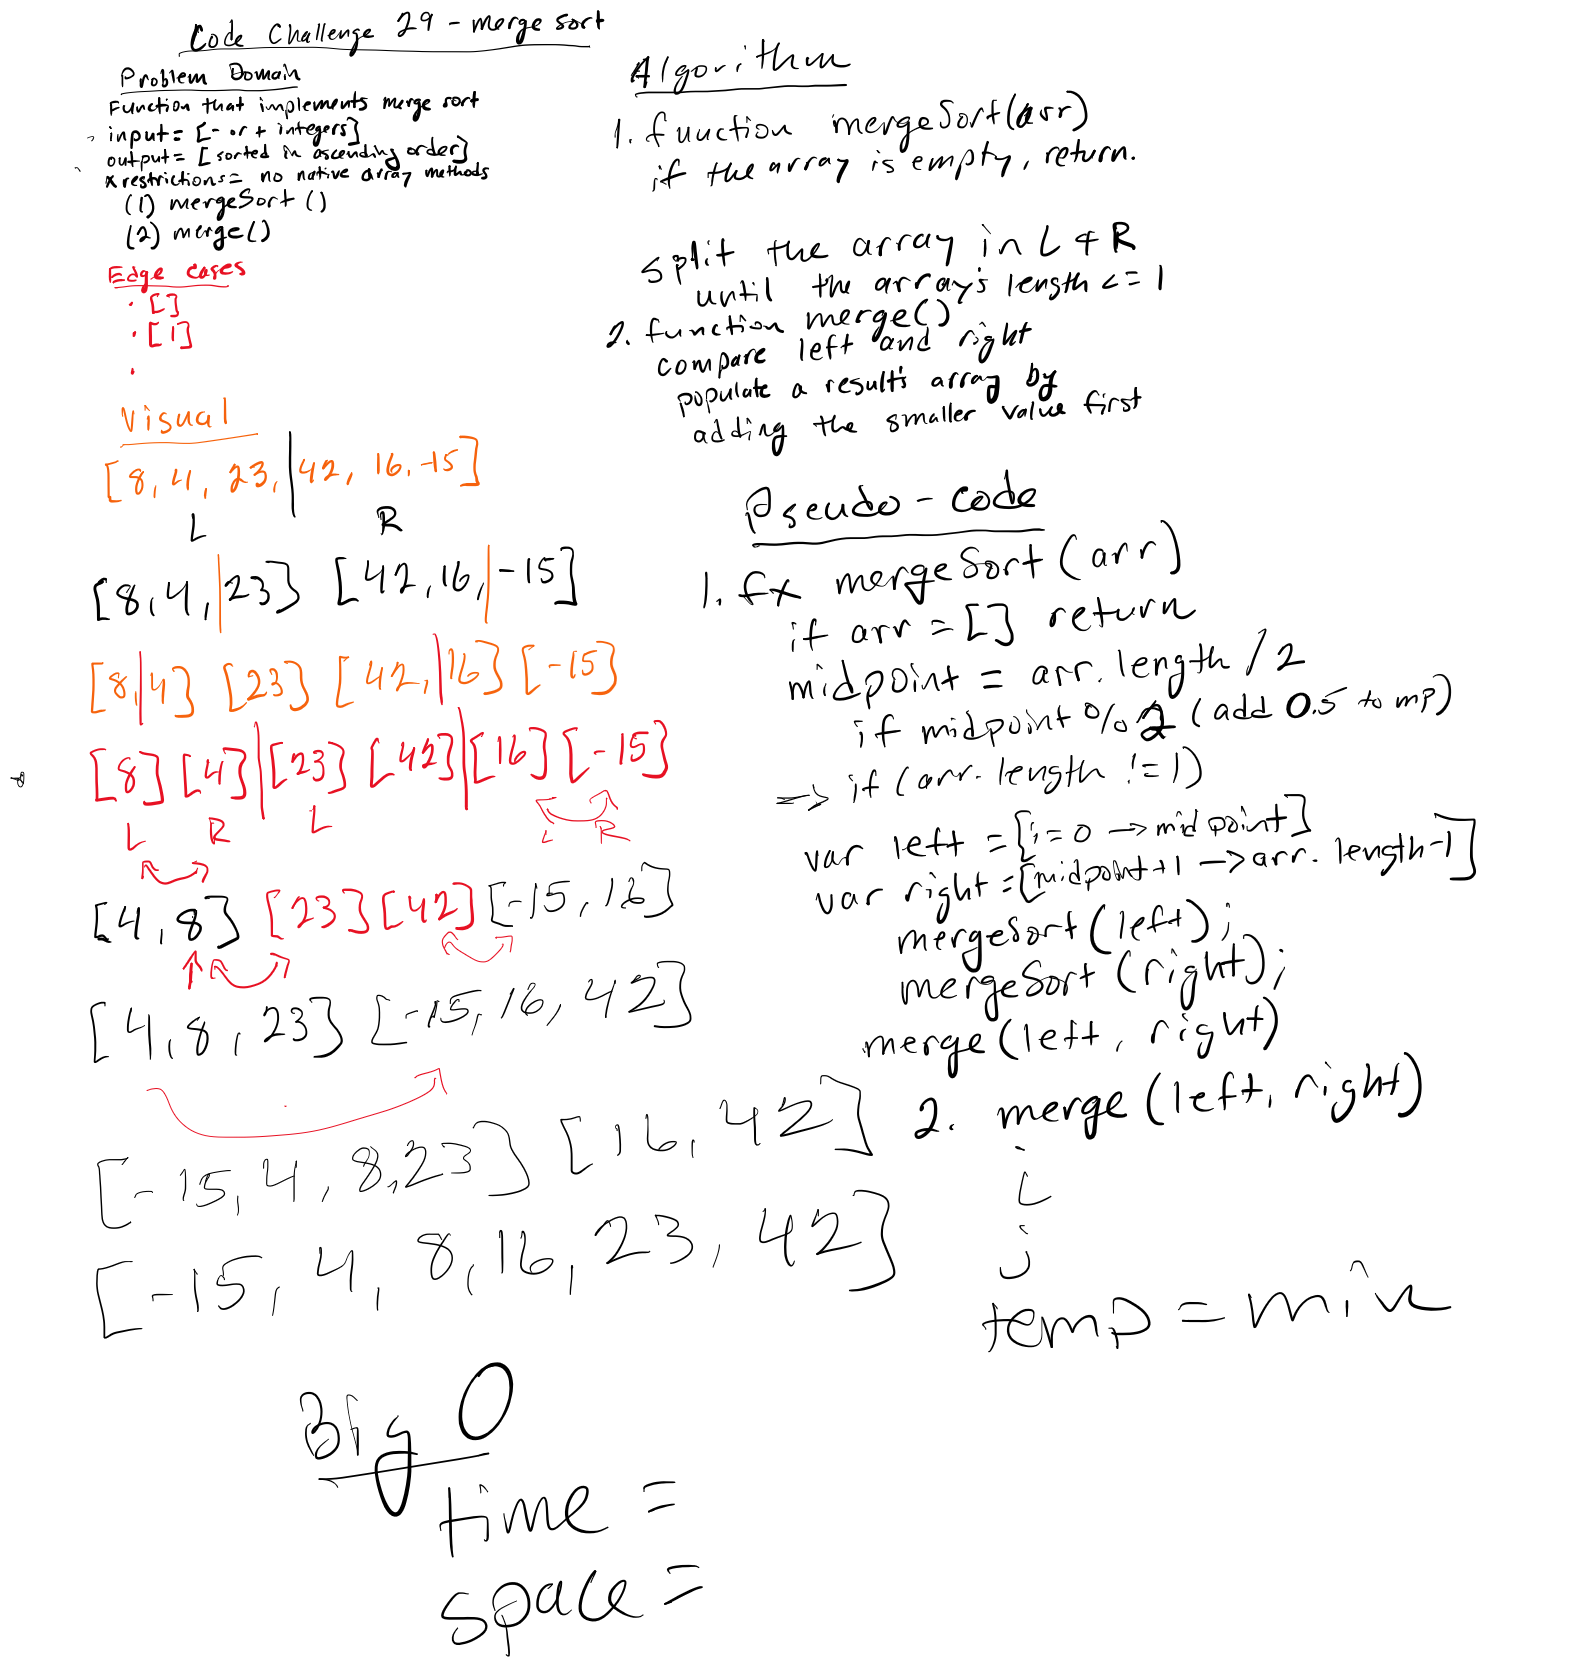 Code Challenge 29 - merge sort
Problem Domain
Function that implements merge sort
input = [- or + integers]
output = [sorted in ascending order]
* restrictions = no native array methods
(1) mergeSort ()
(2) merge()
Edge cases
· []
· [1]
·
Visual
[8, 4, 23, | 42, 16, -15]
L R
[8, 4, | 23] [42, 16, | -15]
[8, | 4] [23] [42, | 16] [-15]
[8] [4] | [23] [42] | [16] [-15]
L R L L R
[4, 8] [23] [42] [-15, 16]
[4, 8, 23] [-15, 16, 42]
[-15, 4, 8, 23] [16, 42]
[-15, 4, 8, 16, 23, 42]
Algorithm
1. function mergeSort(arr)
if the array is empty, return.
split the array in L & R
until the array's length <= 1
2. function merge()
compare left and right
populate a result's array by
adding the smaller value first
Pseudo-code
1. fx mergeSort(arr)
if arr = [] return
midpoint = arr.length / 2
if midpoint % 2 (add 0.5 to mp)
=> if (arr.length != 1)
var left = [i = 0 -> midpoint]
var right = [midpoint+1 -> arr.length-1]
mergeSort(left);
mergeSort(right);
merge(left, right)
2. merge(left, right)
i
j
temp = min
Big O
time =
space =